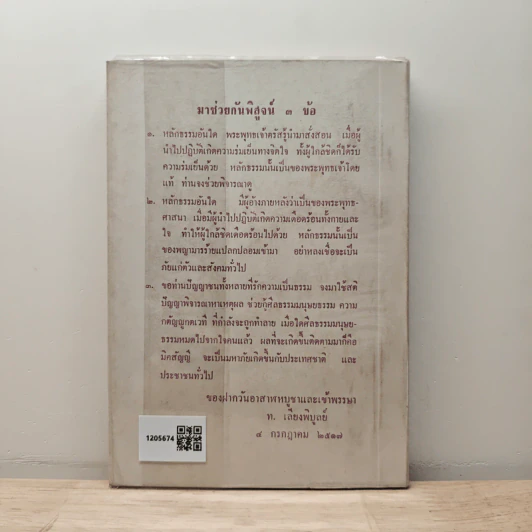 มาช่วยกันพิสูจน์ ๓ ข้อ
๑. หลักธรรมอันใด พระพุทธเจ้าตรัสรู้นำมาสั่งสอน เมื่อผู้
นำไปปฏิบัติเกิดความร่มเย็นทางจิตใจ ทั้งผู้ใกล้ชิดก็ได้รับ
ความร่มเย็นด้วย หลักธรรมนั้นเป็นของพระพุทธเจ้าโดย
แท้ ท่านจงช่วยพิจารณาดู
๒. หลักธรรมอันใด มีผู้อ้างภายหลังว่าเป็นของพระพุทธ-
ศาสนา เมื่อมีผู้นำไปปฏิบัติเกิดความเดือดร้อนทั้งกายและ
ใจ ทำให้ผู้ใกล้ชิดเดือดร้อนไปด้วย หลักธรรมนั้นเป็น
ของพญามารร้ายแปลกปลอมเข้ามา อย่าหลงเชื่อจะเป็น
ภัยแก่ตัวและสังคมทั่วไป
๓. ขอท่านปัญญาชนทั้งหลายที่รักความเป็นธรรม จงมาใช้สติ
ปัญญาพิจารณาหาเหตุผล ช่วยกู้ศีลธรรมมนุษยธรรม ความ
กตัญญูกตเวที ที่กำลังจะถูกทำลาย เมื่อใดศีลธรรมมนุษย-
ธรรมหมดไปจากใจคนแล้ว ผลที่จะเกิดขึ้นติดตามมาก็คือ
มิคสัญญี จะเป็นมหาภัยเกิดขึ้นกับประเทศชาติ และ
ประชาชนทั่วไป
ของฝากวันอาสาฬหบูชาและเข้าพรรษา
ท. เลียงพิบูลย์
๔ กรกฎาคม ๒๕๑๗
1205674